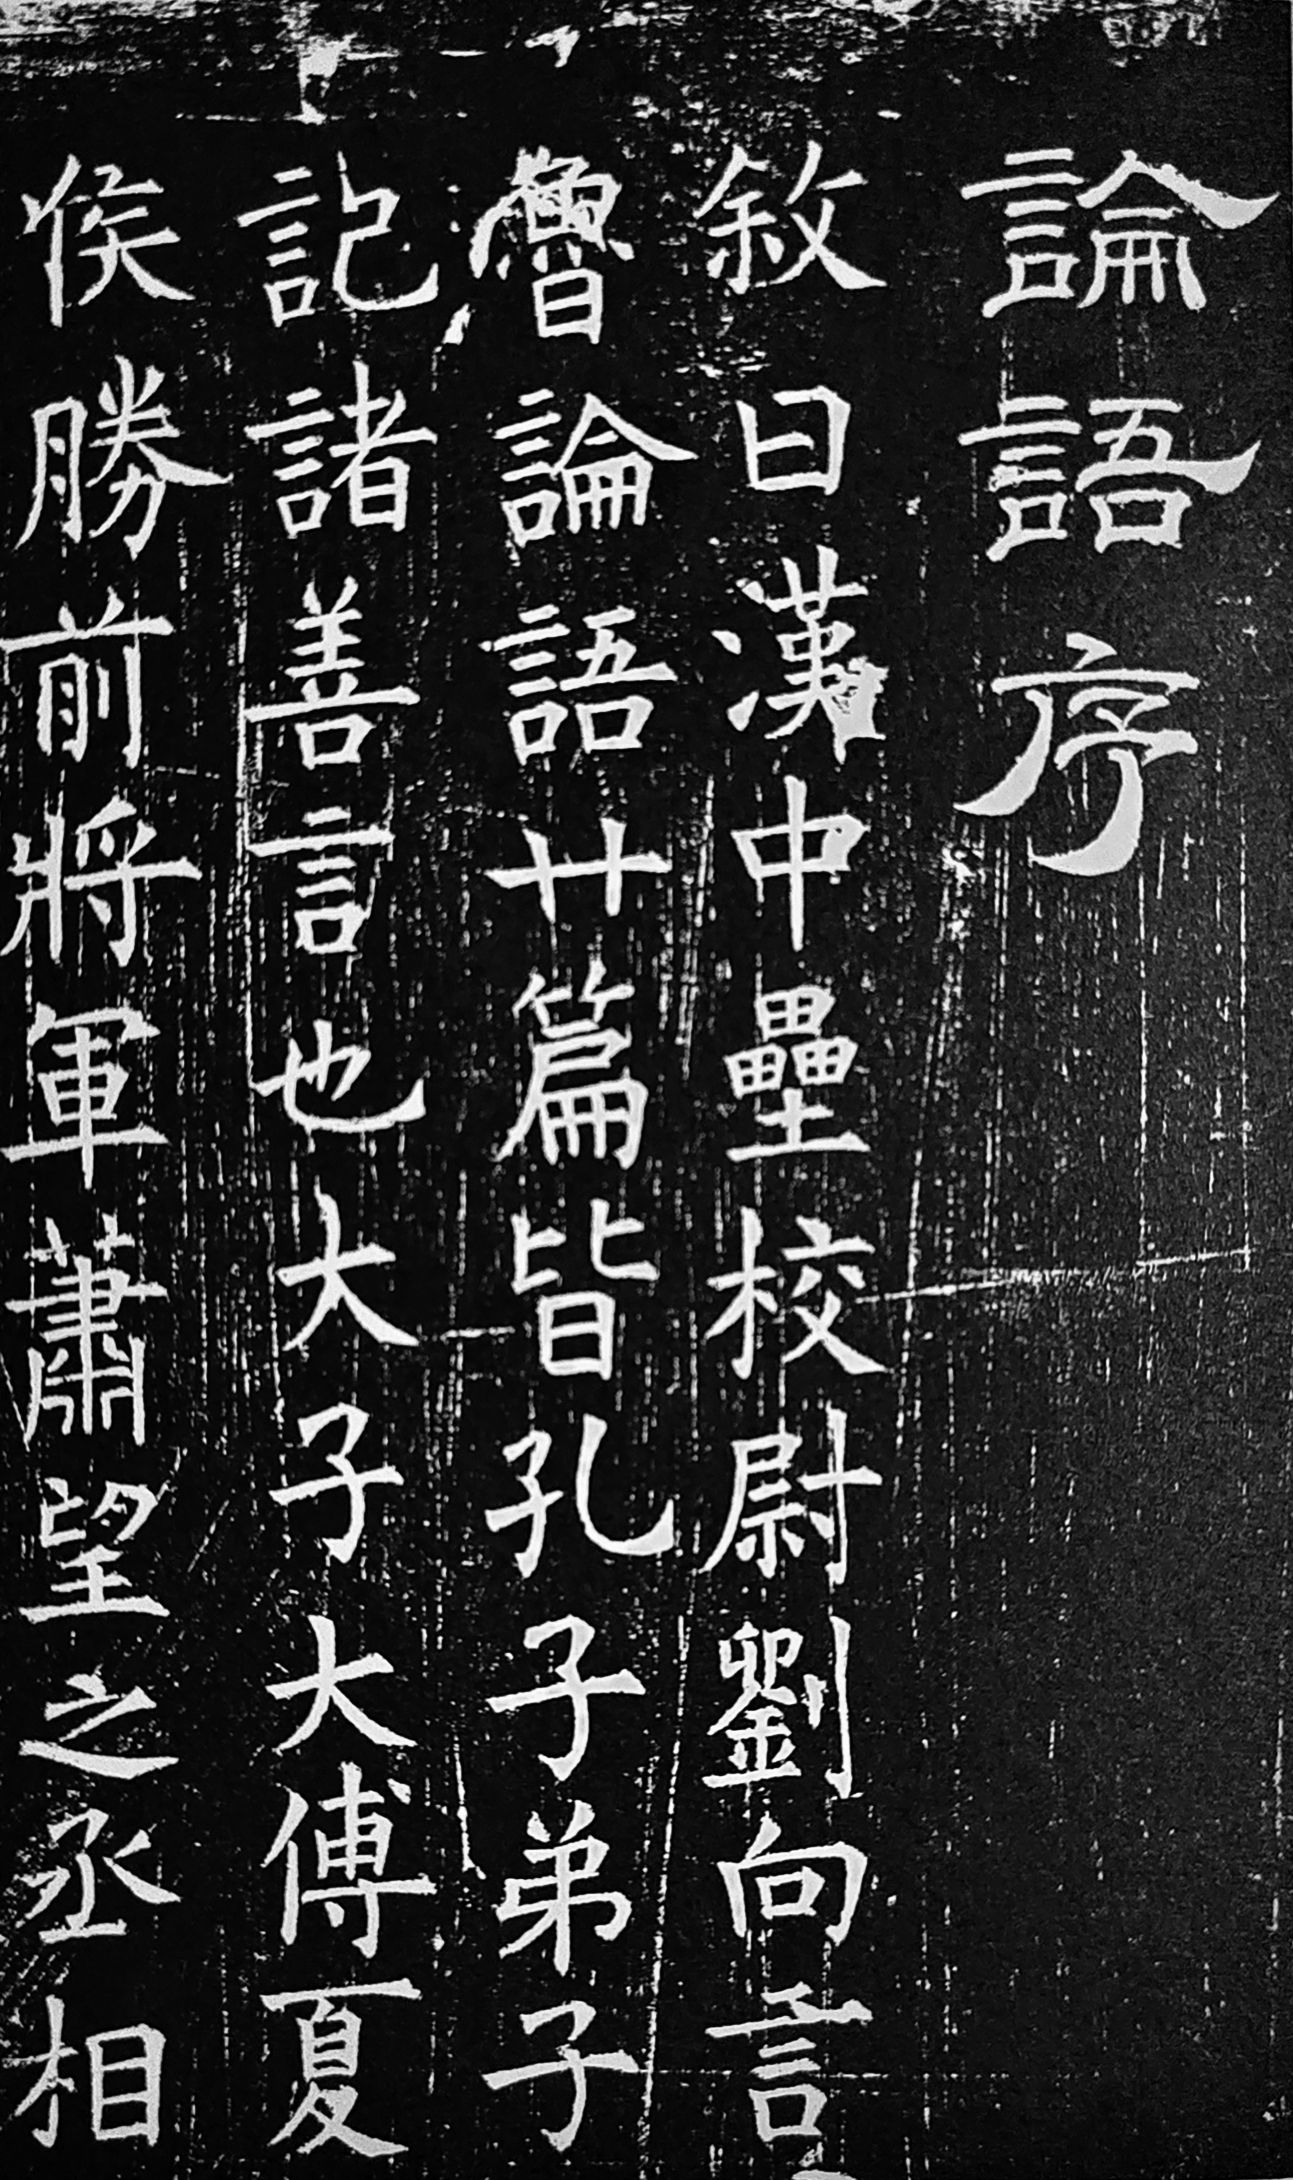 論語序
敘曰漢中壘校尉劉向言
魯論語廿篇皆孔子弟子
記諸善言也大子大傅夏
侯勝前將軍蕭望之丞相